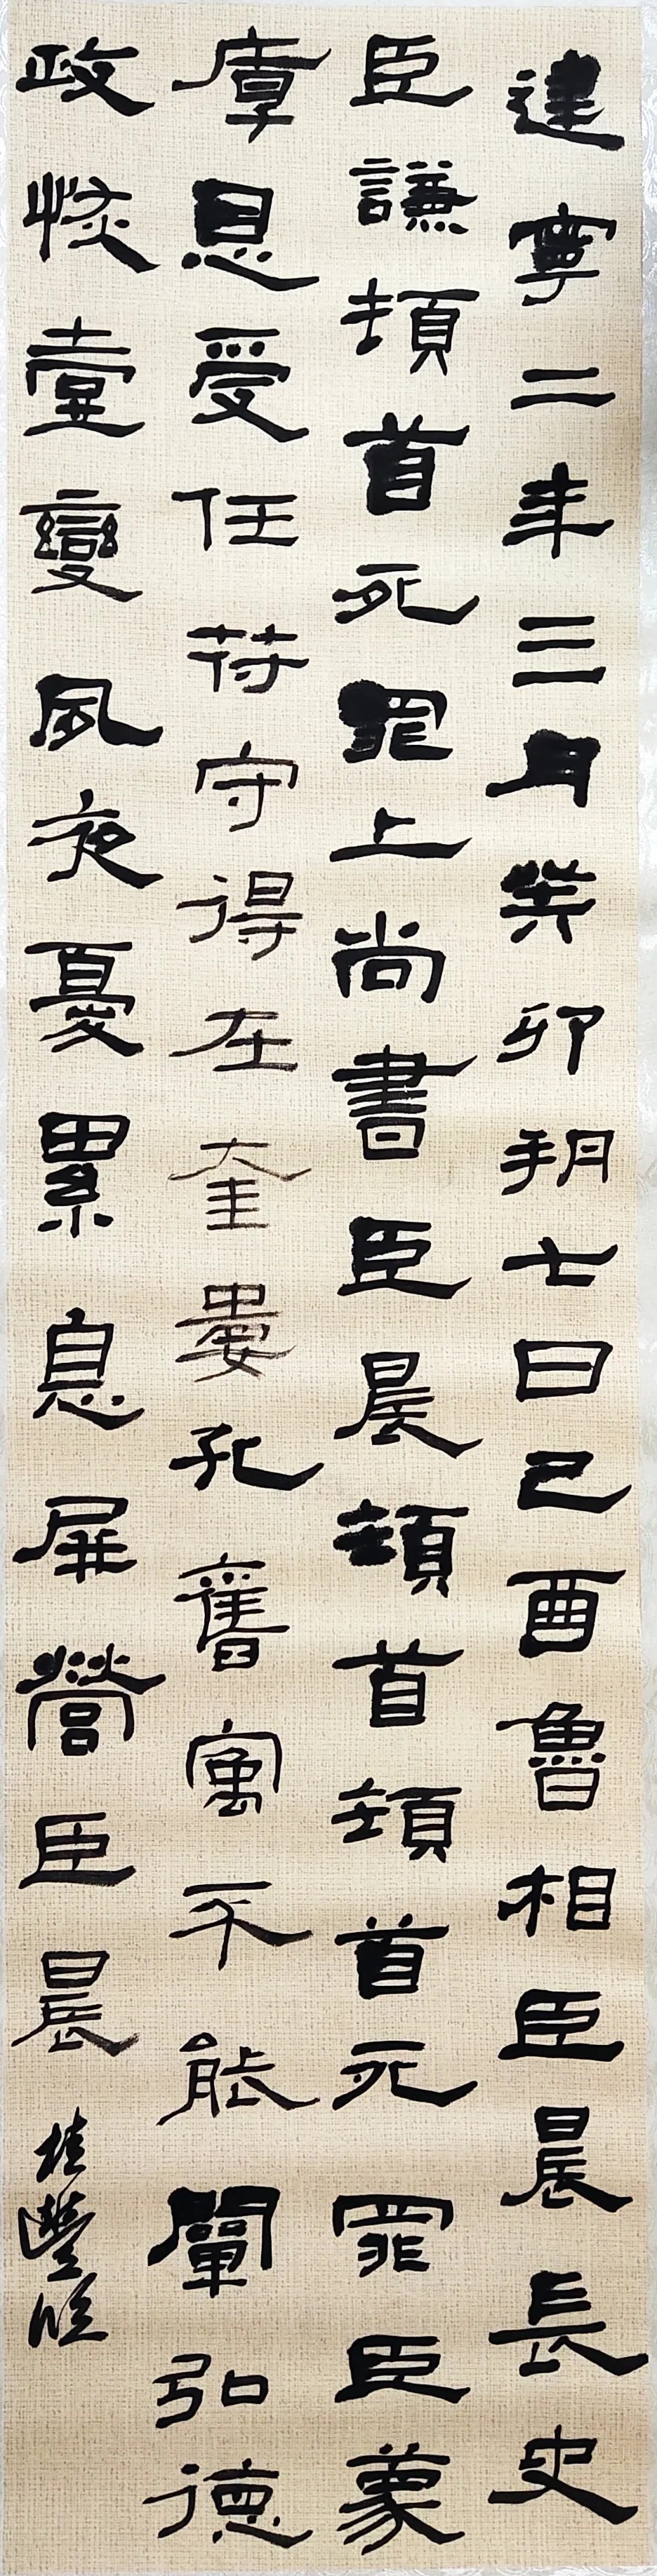 建寧二年三月癸卯朔七日己酉魯相臣晨長史
臣謙頓首死罪上尚書臣晨頓首頓首死罪臣蒙
厚恩受任符守得在奎婁孔舊寓不能闡弘德
政恢壹變夙夜憂累息屏營臣晨
桂豐臨